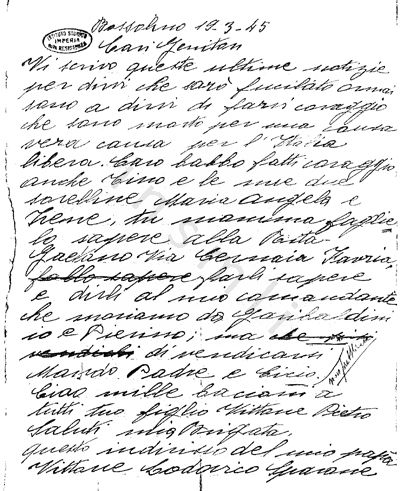 Rossolino 19-3-45
ISTITUTO STORICO
IMPERIA
DELLA RESISTENZA
Cari Genitori
Vi scrivo queste ultime notizie
per dirvi che sarò fucilato ormai
sono a dirvi di farvi coraggio
che sono morti per una causa
vera causa per l'Italia
libera. Caro babbo fatti coraggio,
anche Tino e le mie due
sorelline Maria Angela e
Irene, tu mamma faglie
lo sapere alla
Gaetano Via Cernaia
fallo sapere farli sapere
e dirli al mio comandante
che moriamo da Garibaldini
io e Pierino; ma che
vendichi di vendicarvi
Mando Padre e
Ciao mille bacioni a
tutti tuo figlio Vittone Pietro
Saluti mia Brigata.
questo indirizzo del mio papà
Vittone Lodovico